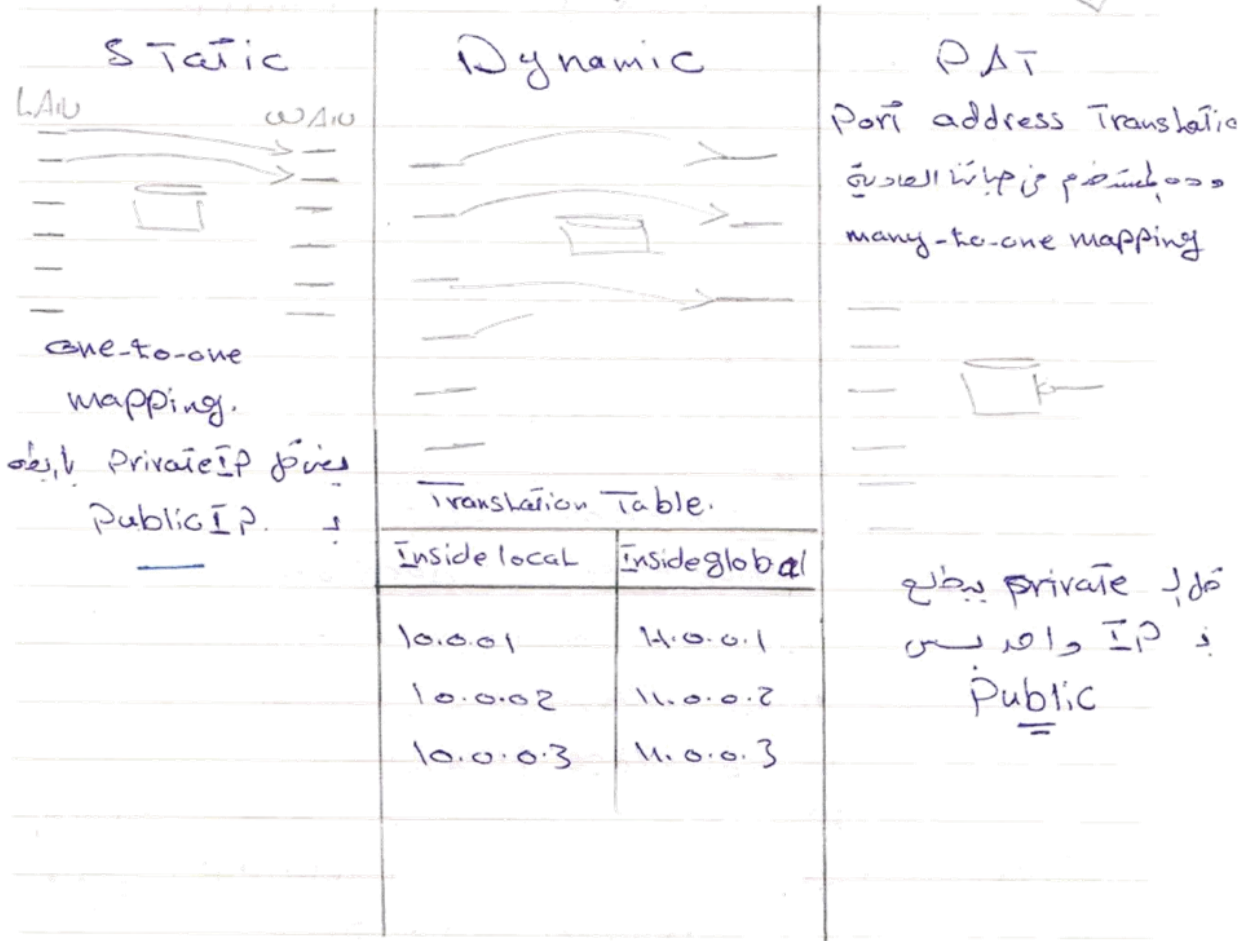 Static
LAN
WAN
one-to-one
mapping.
بفضل Private IP باربطه
بـ Public IP.
Dynamic
Translation Table.
Inside local Inside global
10.0.01 11.0.0.1
10.0.02 11.0.0.2
10.0.0.3 11.0.0.3
PAT
Port address Translatio
وده المستخدم في حياتنا العادية
many-to-one mapping
كل الـ private بيطلع
بـ IP واحد بس
Public